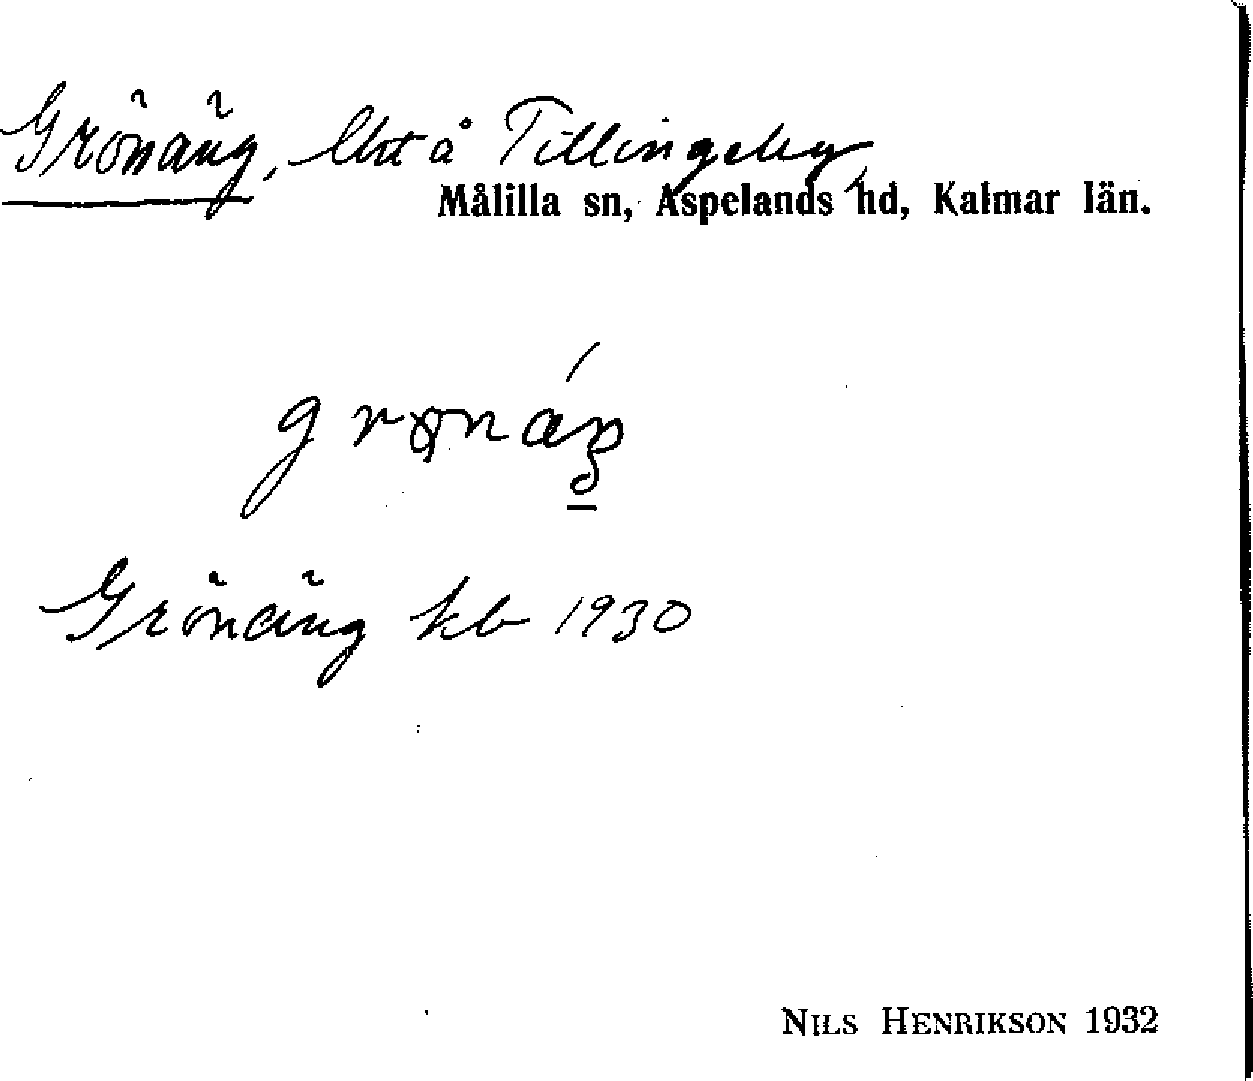 Grönäng, lht å Tillingeby,
Målilla sn, Aspelands hd, Kalmar län.
Grönäng kb 1930
NILS HENRIKSON 1932